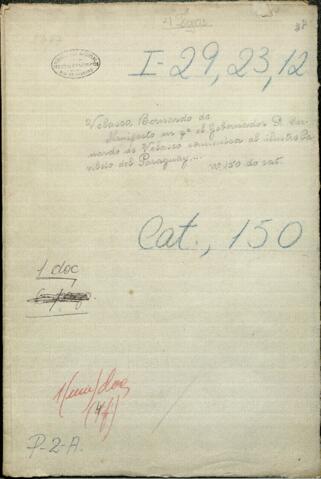 4 Bogas
I-29,23,12
Velasco, Bernardo de
Manifesto en qe el Gobernador D. Ber-
nardo de Velasco comunica al ilustre Ca-
bildo del Paraguay...
nº 150 do cat.
Cat., 150
1 doc
1 (um) doc
(4f)
P-2-A.